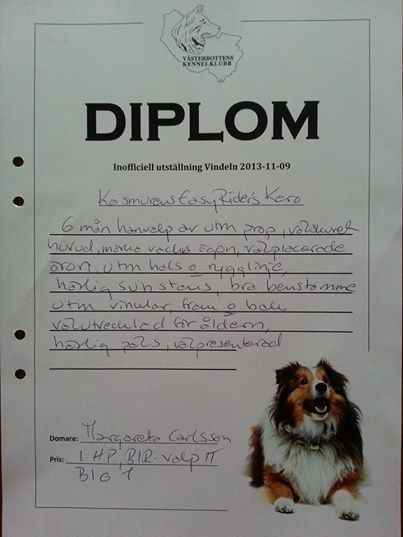 VÄSTERBOTTENS
KENNELKLUBB
DIPLOM
Inofficiell utställning Vindeln 2013-11-09
Kasmurens EasyRider's Kero
6 mån hanvalp av utm prop, välskuret
huvud, mörka vackra ögon, välplacerade
öron, utm hals o rygglinje,
härlig substans, bra benstomme
utm vinklar, fram o bak,
välutvecklad för åldern,
härlig päls, välpresenterad
Domare: Margareta Carlsson
Pris: 1 HP, BIR-valp II
BIG 1